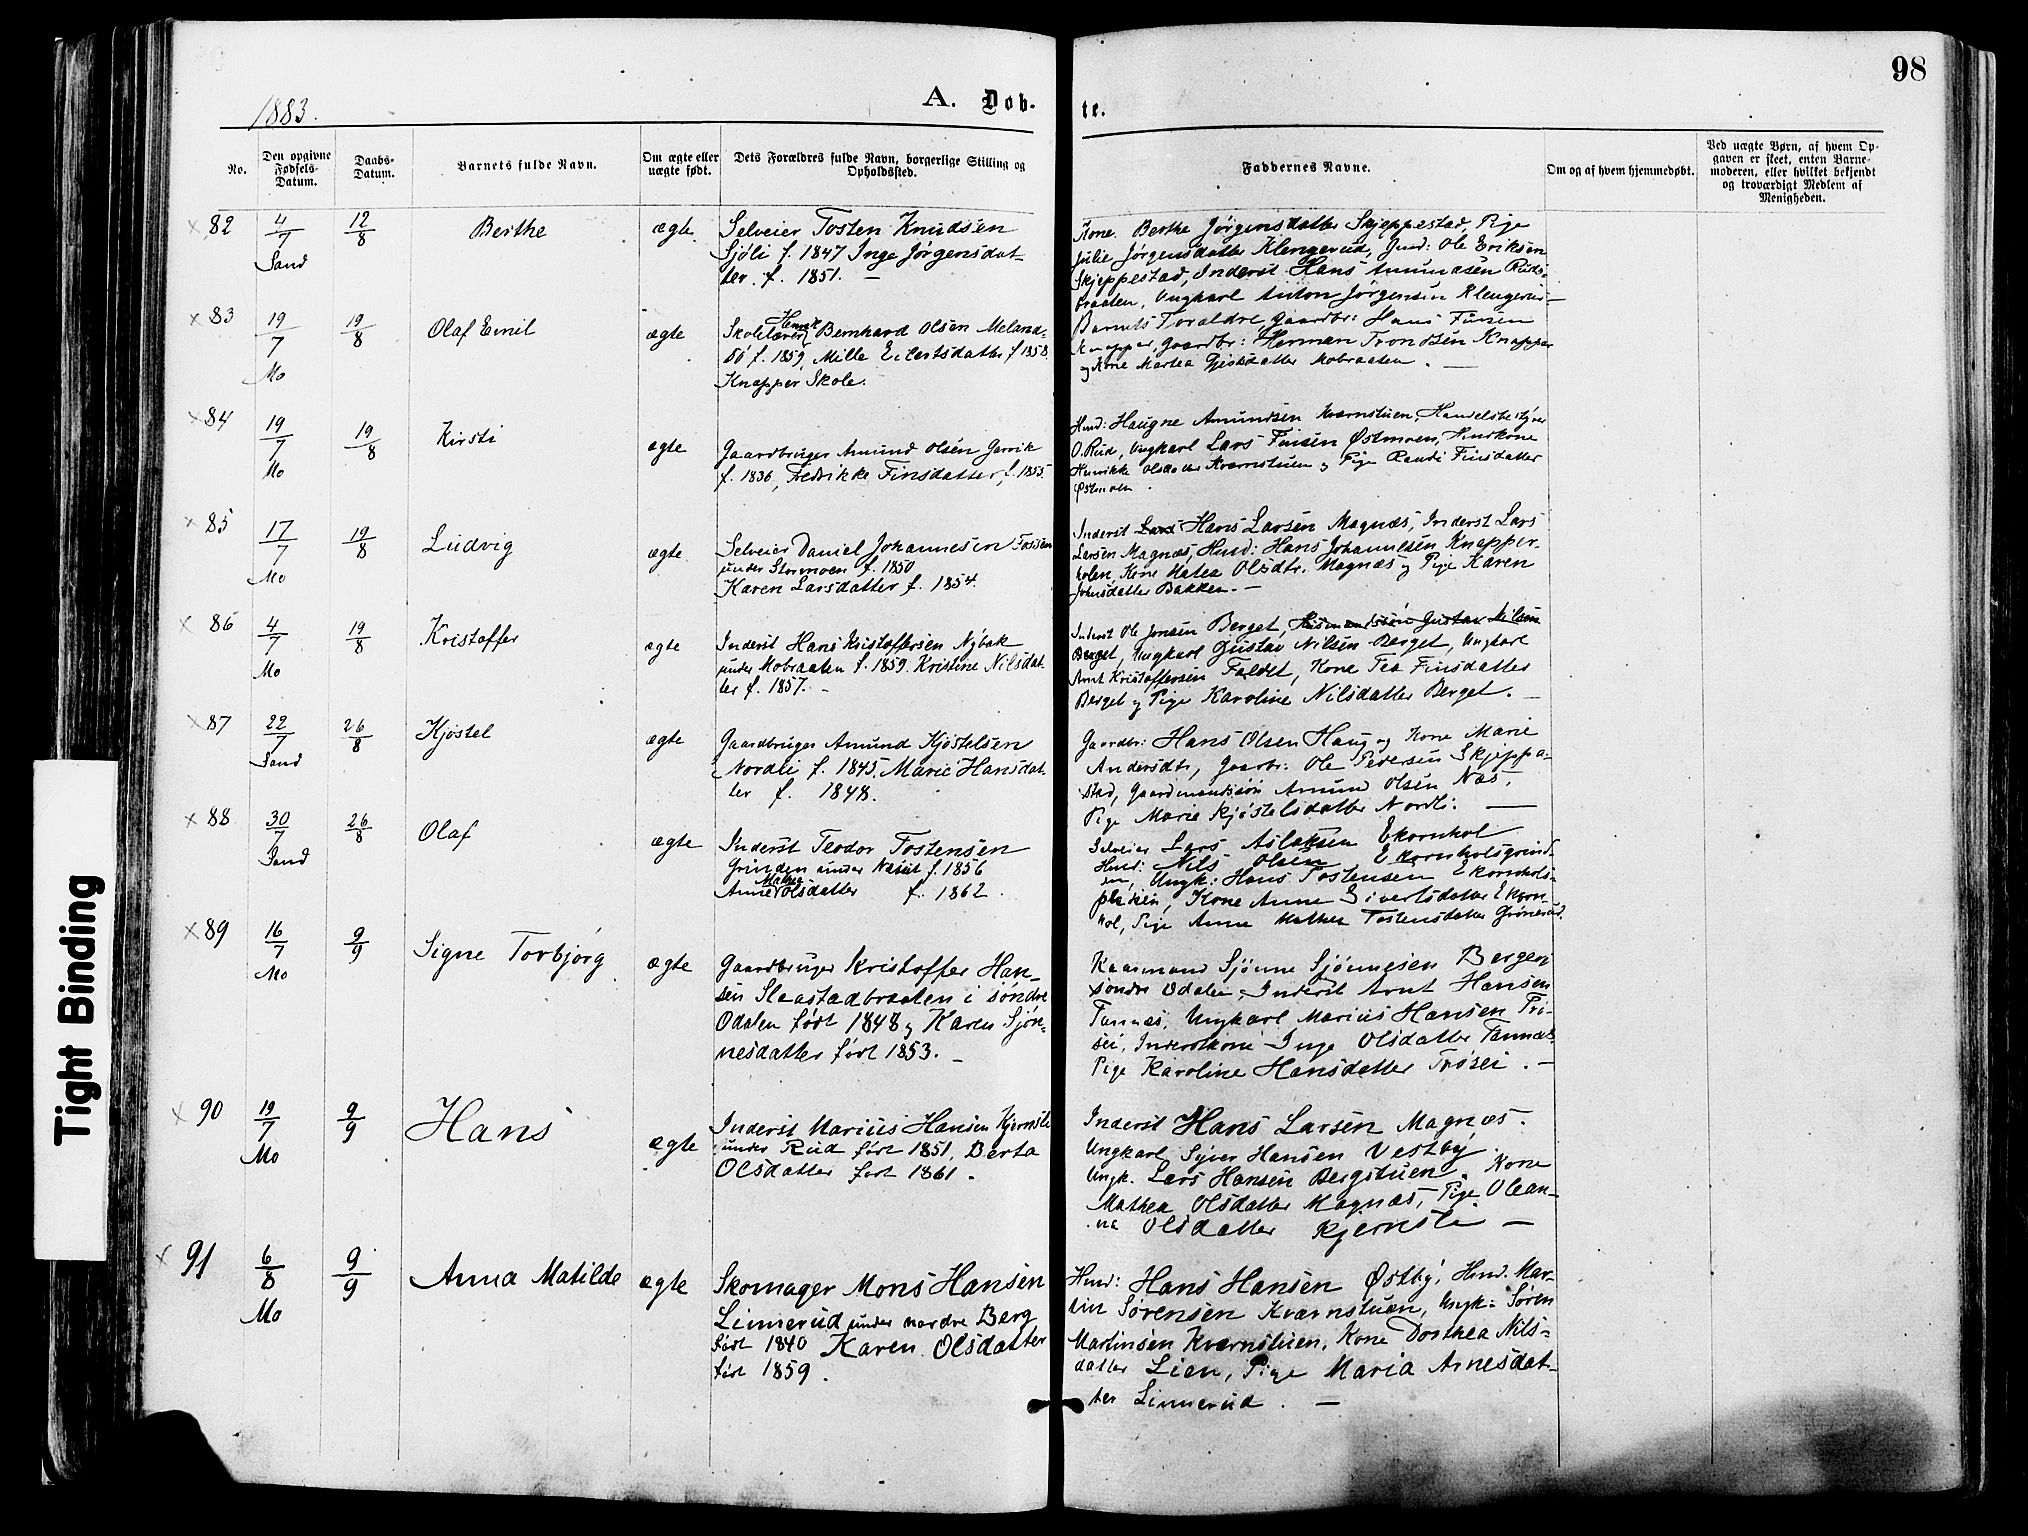 98
1883.
A. Døb-
te.
No.
Den opgivne
Fødsels-
Datum.
Daabs-
Datum.
Barnets fulde Navn.
Om ægte eller
uægte født.
Dets Forældres fulde Navn, borgerlige Stilling og
Opholdssted.
Faddernes Navne.
Om og af hvem hjemmedøbt.
Ved uægte Børn, af hvem Op-
gaven er skeet, enten Barne-
moderen, eller hvilket bekjendt
og troværdigt Medlem af
Menigheden.
× 82
4/7
Sand
12/8
Berthe
ægte
Selveier Tosten Knudsen
Sjøli f. 1847 Inge Jørgensdat-
ter f. 1851. —
Kone Berthe Jørgensdatter Skjeppestad, Pige
Julie Jørgensdatter Klengerud, Gmd: Ole Eriksen
Skjeppestad, Inderst Hans Amundsen Ruds-
braaten, Ungkarl Anton Jørgensen Klengerud —
× 83
19/7
Mo
19/8
Olaf Emil
ægte
Skolelærer Henrik Bernhard Olsen Meland-
sø f. 1859, Mille Eilertsdatter f 1858.
Knapper Skole.
Barnets Forældre, Gaardbr: Hans Finsen
Knapper, Gaardbr: Herman Trondsen Knapper
og Kone Martea Mobraaten. —
× 84
19/7
Mo
19/8
Kirsti
ægte
Gaardbruger Amund Olsen Garvik
f. 1836, Fredrikke Finsdatter, f. 1855.
Hmd: Haugne Amundsen Kværnstuen, Handelsbestyrer
O. Rud, Ungkarl Lars Finsen Østmoen, Huskone
Henrikke Olsdatter Kværnstuen og Pige Randi Finsdatter
Østmoen.
× 85
17/7
Mo
19/8
Ludvig
ægte
Selveier Daniel Johannesen Fossen
under Stormoen f. 1850
Karen Larsdatter f. 1854.
Inderst Lars Hans Larsen Magnæs, Inderst Lars
Larsen Magnæs, Hmd: Hans Johannesen Knapper-
holen, Kone Matea Olsdtr. Magnæs og Pige Karen
Johnsdatter Bakken. —
× 86
4/7
Mo
19/8
Kristoffer
ægte
Inderst Hans Kristoffersen Nybak
under Mobraaten f. 1859. Kristine Nilsdat-
ter f. 1857. —
Inderst Ole Jensen Berget, Husmandssøn Gustav Nilsen
Berget, Ungkarl Gustav Nilsen Berget, Ungkarl
Arnt Kristoffersen Faldet, Kone Tea Finsdatter
Berget og Pige Karoline Nilsdatter Berget. —
× 87
22/7
Sand
26/8
Kjøstel
ægte
Gaardbruger Amund Kjøstelsen
Nordli f. 1845. Marie Hansdat-
ter f. 1848.
Gaardbr: Hans Olsen Haug og Kone Marie
Andersdtr, Gaardbr. Ole Pedersen Skjeppe-
stad, Gaardmandssøn Amund Olsen Næs,
Pige Marie Kjøstelsdatter Nordli. —
× 88
30/7
Sand
26/8
Olaf
ægte
Inderst Teodor Tostensen
Grinden under f. 1856
Anne Mathea Olsdatter f. 1862.
Selveier Lars Aslaksen Ekornhol
Hmd: Nils Olsen Ekornholsgrind-
en, Ungk: Hans Tostensen Ekornhols-
pladsen, Kone Anne Sivertsdatter Ekorn-
hol, Pige Anne Mathea Tostensdatter Grønerud.
× 89
16/7
Mo
9/9
Signe Torbjørg
ægte
Gaardbruger Kristoffer Han-
sen Slaastadbraaten i søndre
Odalen født 1848 og Karen Sjøn-
nesdatter født 1853. —
Kaarmand Sjønne Sjønnesen Bergers
søndre Odalen, Inderst Arnt Hansen
Tannæs, Ungkarl Marius Hansen Trø-
sei, Inderstkone Inge Olsdatter Tannæs
Pige Karoline Hansdatter Trøsei. —
× 90
19/7
Mo
9/9
Hans
ægte
Inderst Marius Hansen Kjernsli
under Rud født 1851, Berta
Olsdatter født 1861.
Inderst Hans Larsen Magnæs.
Ungkarl Syver Hansen Vestby
Ungk. Lars Hansen Bergstuen. Kone
Mathea Olsdatter Magnæs, Pige Olean-
na Olsdatter Kjernsli —
× 91
6/8
Mo
9/9
Anna Matilde
ægte
Skomager Mons Hansen
Linnerud under nordre Berg
født 1840 Karen Olsdatter
født 1859.
Hmd: Hans Hansen Østby, Hmd. Mar-
tin Sørensen Kværnstuen, Ungk: Søren
Martinsen Kværnstuen, Kone Dorthea Nils-
datter Lien, Pige Maria Arnesdat-
ter Linnerud. —
Tight Binding